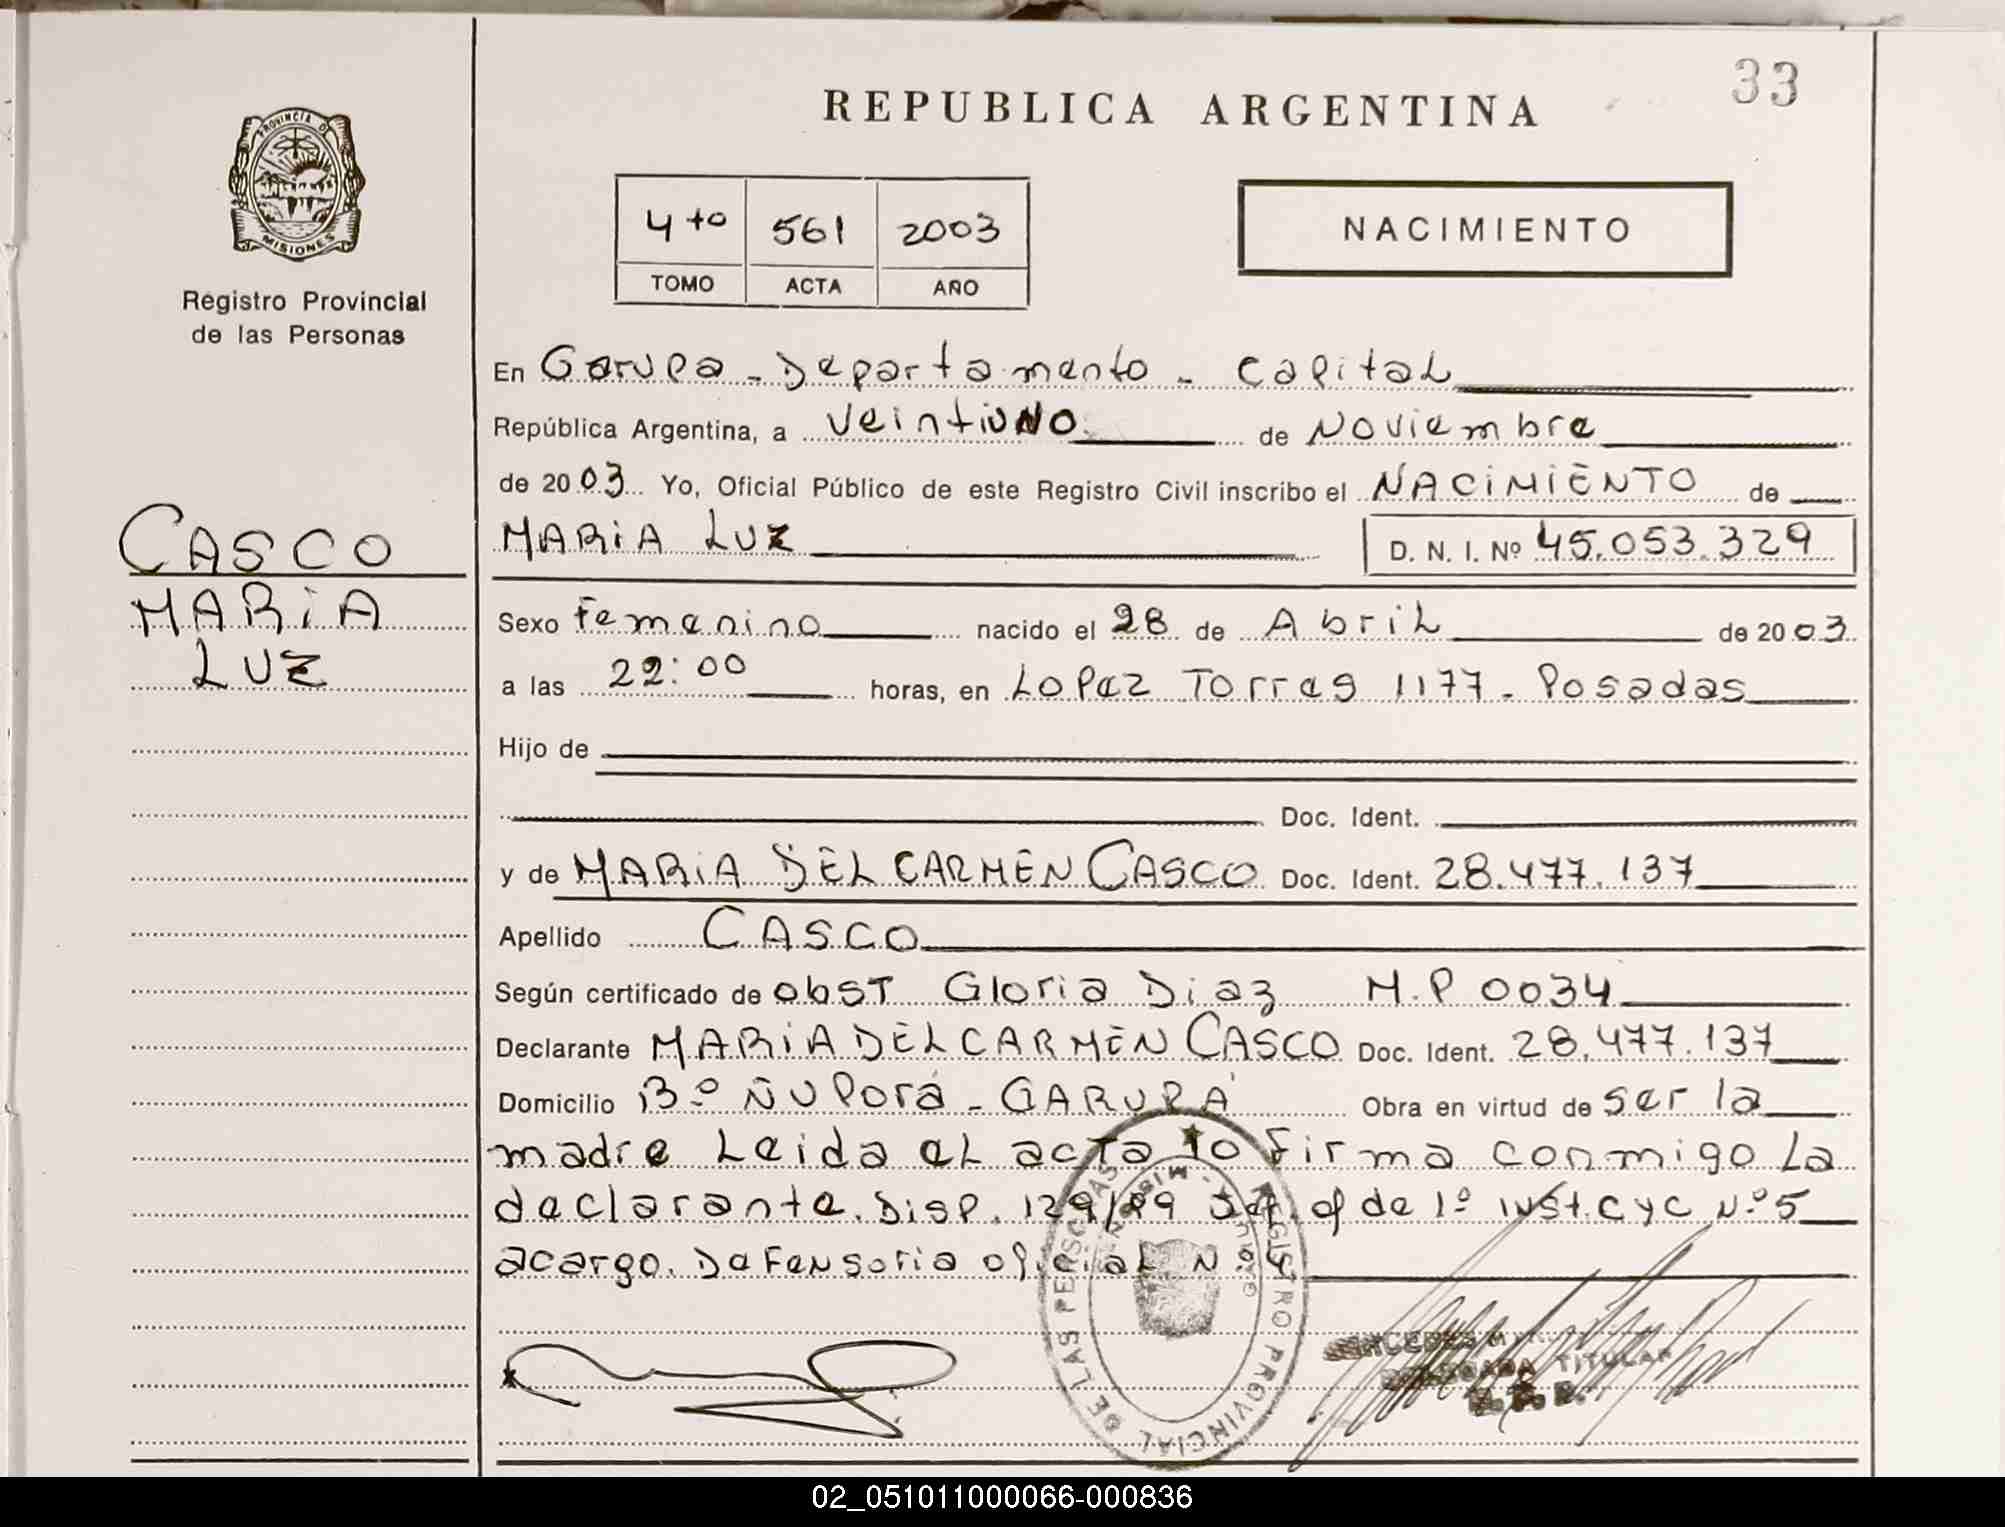 33
REPUBLICA ARGENTINA
PROVINCIA DE
MISIONES
Registro Provincial
de las Personas
4to 561 2003
TOMO ACTA AÑO
NACIMIENTO
CASCO
MARIA
LUZ
En Garupa - Departamento - Capital
República Argentina, a veintiuno de Noviembre
de 2003 Yo, Oficial Público de este Registro Civil inscribo el NACIMIENTO de
MARIA LUZ D. N. I. Nº 45.053.329
Sexo Femenino nacido el 28 de Abril de 2003
a las 22:00 horas, en Lopez Torres 1177 - Posadas
Hijo de
Doc. Ident.
y de MARIA DEL CARMEN CASCO Doc. Ident. 28.477.137
Apellido CASCO
Según certificado de obst Gloria Diaz M.P 0034
Declarante MARIA DEL CARMEN CASCO Doc. Ident. 28.477.137
Domicilio Bº Ñu Porá - GARUPÁ Obra en virtud de ser la
madre Leida el acta lo Firma conmigo La
declarante. Disp. 129/99 of de 1º Inst. C y C Nº 5
acargo. Defensoria oficial N
REGISTRO PROVINCIAL DE LAS PERSONAS
TITULAR
02_051011000066-000836